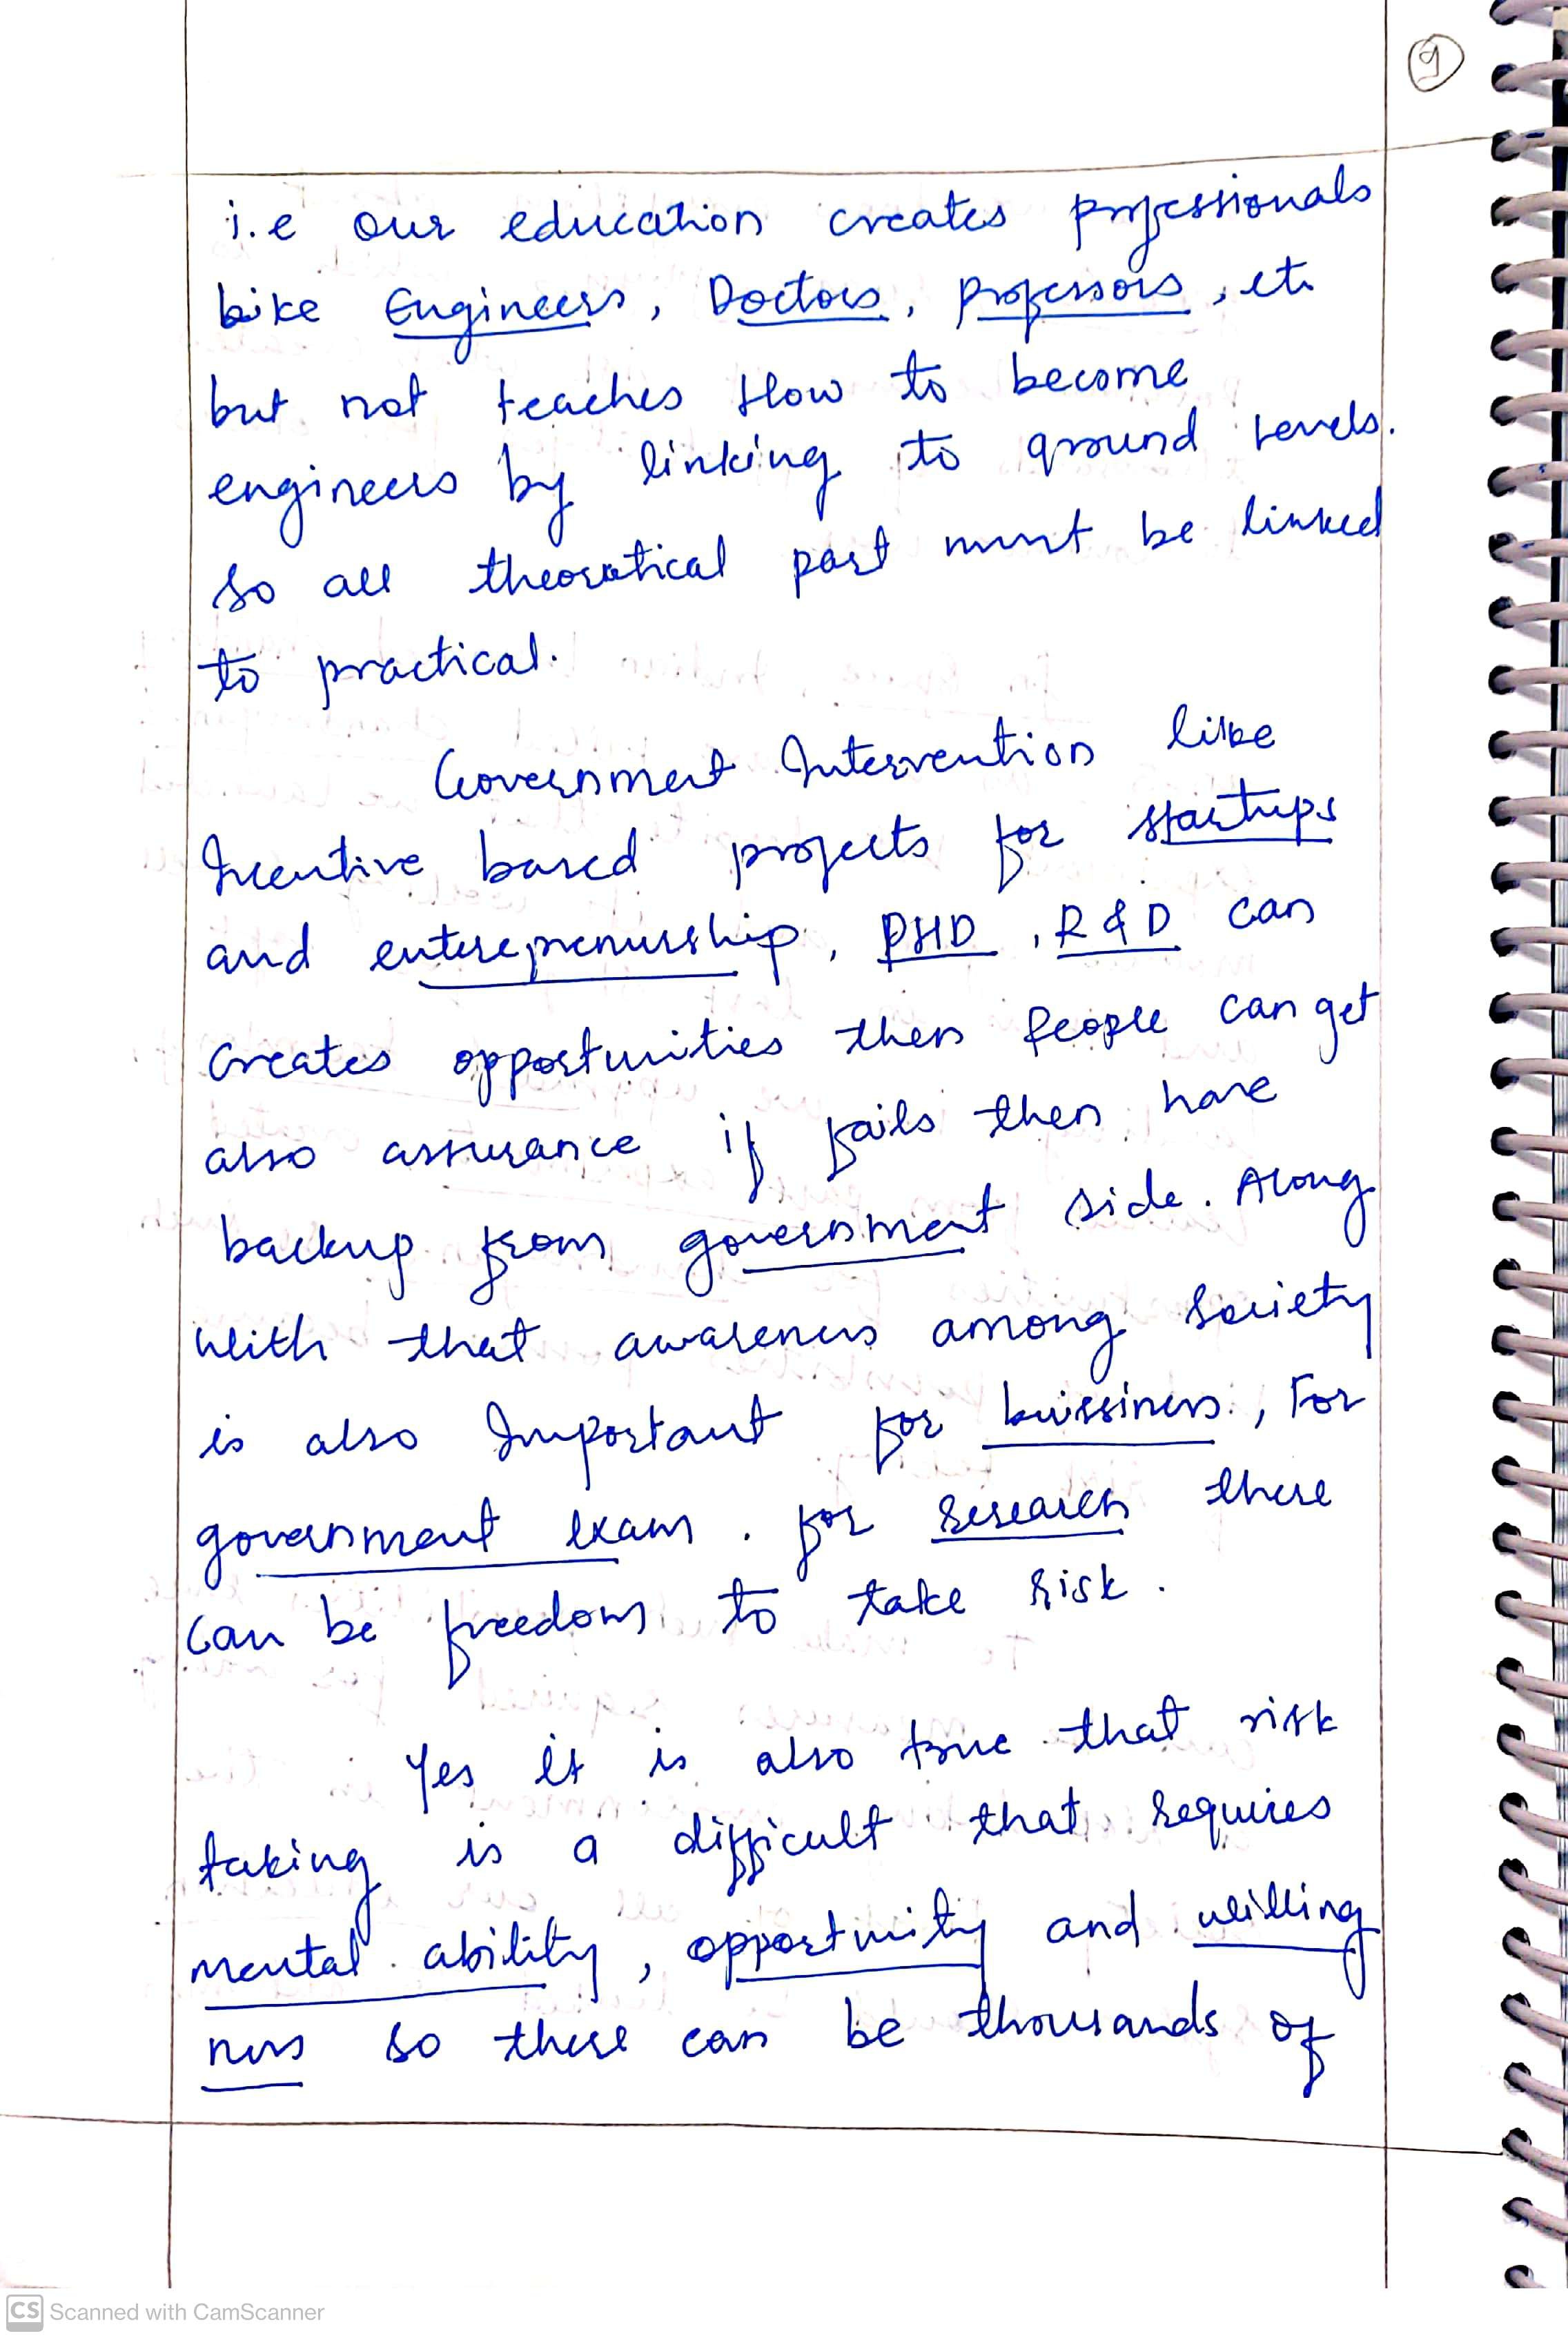 9
i.e our education creates professionals
like Engineers, Doctors, Professors, etc
but not teaches How to become
engineers by linking to ground levels.
So all theoratical part must be linked
to practical.
Government Intervention like
Incentive based projects for startups
and entereprenurship, PHD, R&D can
creates opportunities then people can get
also assurance if fails then have
backup from government side. Along
with that awareness among society
is also Important for buissiness, For
government exam. for research there
can be freedom to take risk.
Yes it is also true that risk
taking is a difficult that requires
mental ability, opportunity and willing
ness so there can be thousands of
CS Scanned with CamScanner